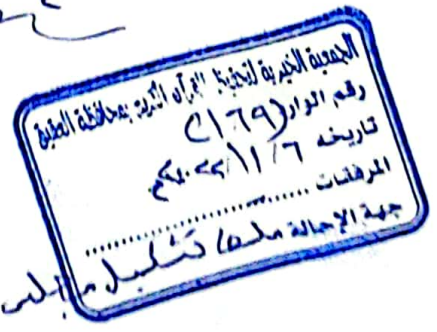 الجمعية الخيرية لتحفيظ القرآن الكريم بمحافظة العقيق
رقم الوارد (٢١٦٩)
تاريخه ٢٠٢٢/١١/٦م
المرفقات ....................
جهة الإحالة ملف/ تشكيل مجلس